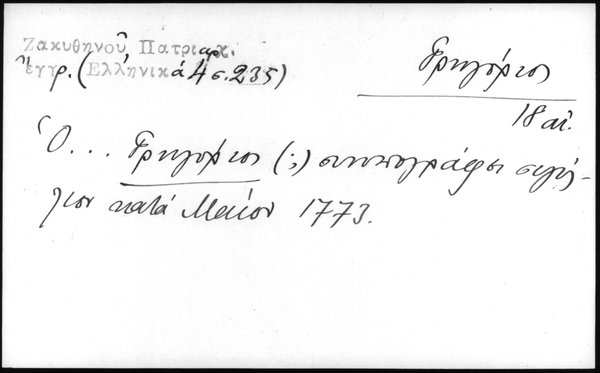 Ζακυθηνοῦ, Πατριαρχ.
Ἔγγρ. (Ἑλληνικά 4 σ. 235)
Γρηγόριος
18 αἰ.
Ὁ ... Γρηγόριος (;) συνυπογράφει σιγίλ-
λιον κατά Μαΐον 1773.